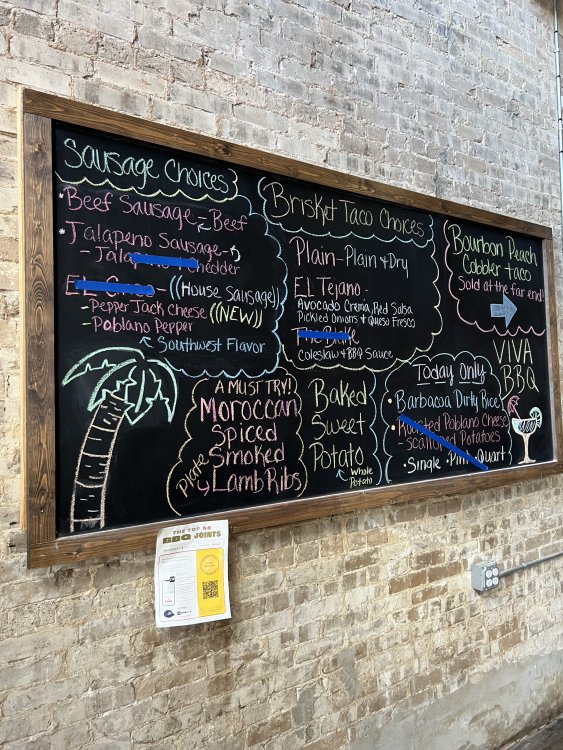 Sausage Choices
• Beef Sausage - Beef
• Jalapeno Sausage -
- Cheddar
- ((House Sausage))
- Pepper Jack Cheese ((NEW))
- Poblano Pepper
Southwest Flavor
Brisket Taco Choices
Plain - Plain & Dry
El Tejano -
Avocado Crema, Red Salsa
Pickled Onions & Queso Fresco
Coleslaw & BBQ Sauce
Bourbon Peach
Cobbler taco
Sold at the far end!
VIVA
BBQ
A MUST TRY!
Moroccan
Spiced
Smoked
Lamb Ribs
Plate
Baked
Sweet
Potato
Whole
Potato
Today Only
• Barbacoa Dirty Rice
• Roasted Poblano Cheese
Scalloped Potatoes
• Single • Pint • Quart
THE TOP 50
BBQ JOINTS